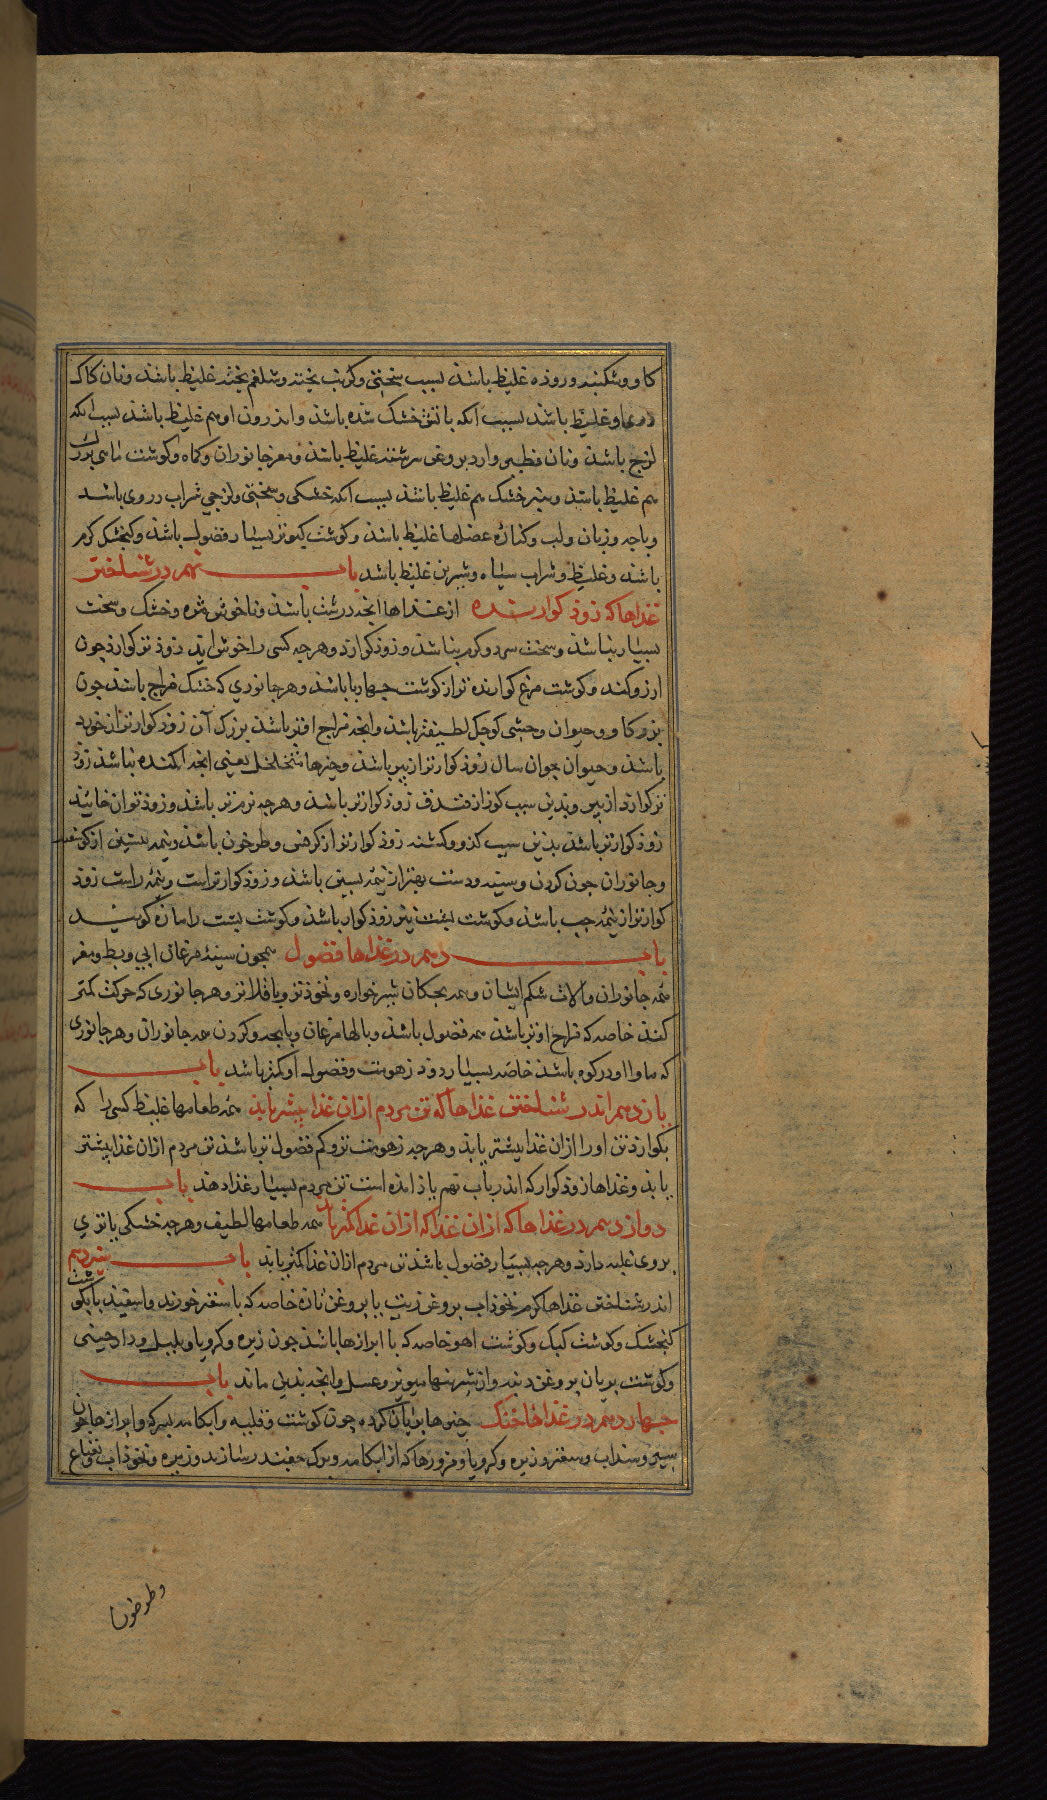 کاو و شکنبه و روده غلیظ باشذ بسبب سختی و کرنب پخته و شلغم پخته غلیظ باشذ و نان کاک
و غلیظ باشذ بسبب انکه باتش خشک شده باشذ و اندرون او هم غلیظ باشذ بسبب انکه
لزج باشذ و نان فطیر وارد بروغن سرشته غلیظ باشذ و مغز جانوران و کماه و کوشت ماهی بزرک
هم غلیظ باشذ و پنیر خشک هم غلیظ باشذ بسبب انکه خشکی و سختی و لزجی شراب در وی باشذ
و پاجه و زبان و لب و کناره عضلها غلیظ باشذ و کوشت کبوتر بسیار فضول باشذ و کنجشک کرم
باشذ و غلیظ و شراب سیاه و شیرین غلیظ باشذ باب نهم در شناختن
غذاها که زوذ کوارنده از غذاها انجه درشت باشذ و ناخوش مزه و خشک و سخت
بسیار نباشذ و سخت سرد و کرم نباشذ و زوذ کوارد و هرجه کسی را خوش اید زوذتر کوارد جون
ارزو کند و کوشت مرغ کوارنده تر از کوشت جهارپا باشذ و هر جانوری که خشک مزاج باشذ جون
بز و کاو و حیوان وحشی کوجک لطیفتر باشذ و انجه مزاج او تر باشذ بزرک آن زوذ کوارتر از خورد
باشذ و حیوان جوان سال زوذ کوارتر از پیر باشذ و جیزها متخلخل یعنی انجه اکنده نباشذ زوذ
تر کوارد از پیر و بدین سبب کوز از فندق زوذ کوارتر باشذ و هرجه نرم تر باشذ و زوذ توان خایید
زوذ کوارتر باشذ بدین سبب کدو و کشنه زوذ کوارتر از کرفس و طرخون باشذ و نیمه پیشین از کوسفند
و جانوران جون کردن و سینه و دست بهتر از نیمه پسین باشذ و زوذ کوارتر است و نیمه راست زوذ
کوارتر از نیمه جب باشذ و کوشت پشت نیز زوذ کوار باشذ و کوشت پشت را مازه کویند
باب دهم در غذاها فضول همجون سینه مرغان ابی و بط و مغز
همه جانوران و الات شکم ایشان و همه بجکان شیرخواره و نخوذ تر و باقلا تر و هر جانوری که حرکت کمتر
کند خاصه که مزاج او تر باشذ همه فضول باشذ و بالها مرغان و پایجه و کردن همه جانوران و هر جانوری
که ماوا او در کوه باشذ خاصه بسیار دود زهومت و فضول او کمتر باشد باب
یازدهم اندر شناختن غذاها که تن مردم ازان غذا بیشتر یابذ همه طعامها غلیظ کسی را که
بکوارذ تن او را ازان غذا بیشتر یابذ و هرجه زهومت تر و کم فضول تر باشذ تن مردم ازان غذا بیشتر
یابذ و غذاها زوذ کوار که اندر باب نهم یاذ امذه است تن مردم بسیار غذا دهذ باب
دوازدهم در غذاها که ازان غذا که ازان غذا کمتر یابد همه طعامها لطیف و هرجه خشکی یا تری
بر وی غلبه دارد و هرجه بسیار فضول باشذ تن مردم ازان غذا کمتر یابذ باب سیزدهم
اندر شناختن غذاها کرم نخوذاب بروغن زیت یا بروغن تازه خاصه که با سفنز خورند و اسفیدبا بکوشت
کنجشک و کوشت کبک و کوشت اهو خاصه که با ابزارها باشذ جون زیره و کرویا و پلپل و دارجینی
و کوشت بریان بروغن دنبه و از شیرینیها میویز و عسل و انجه بذین ماند باب
جهاردهم در غذاها خنک جیزها بریان کرده جون کوشت و قلیه و ابکامه بسرکه و ابزارها جون
سیر و سنداب و سعتر و زیره و کرویا و مزورها که از ابکامه و برک جغندر سازند و زیره و نخوذاب و فقاع
و طرخون